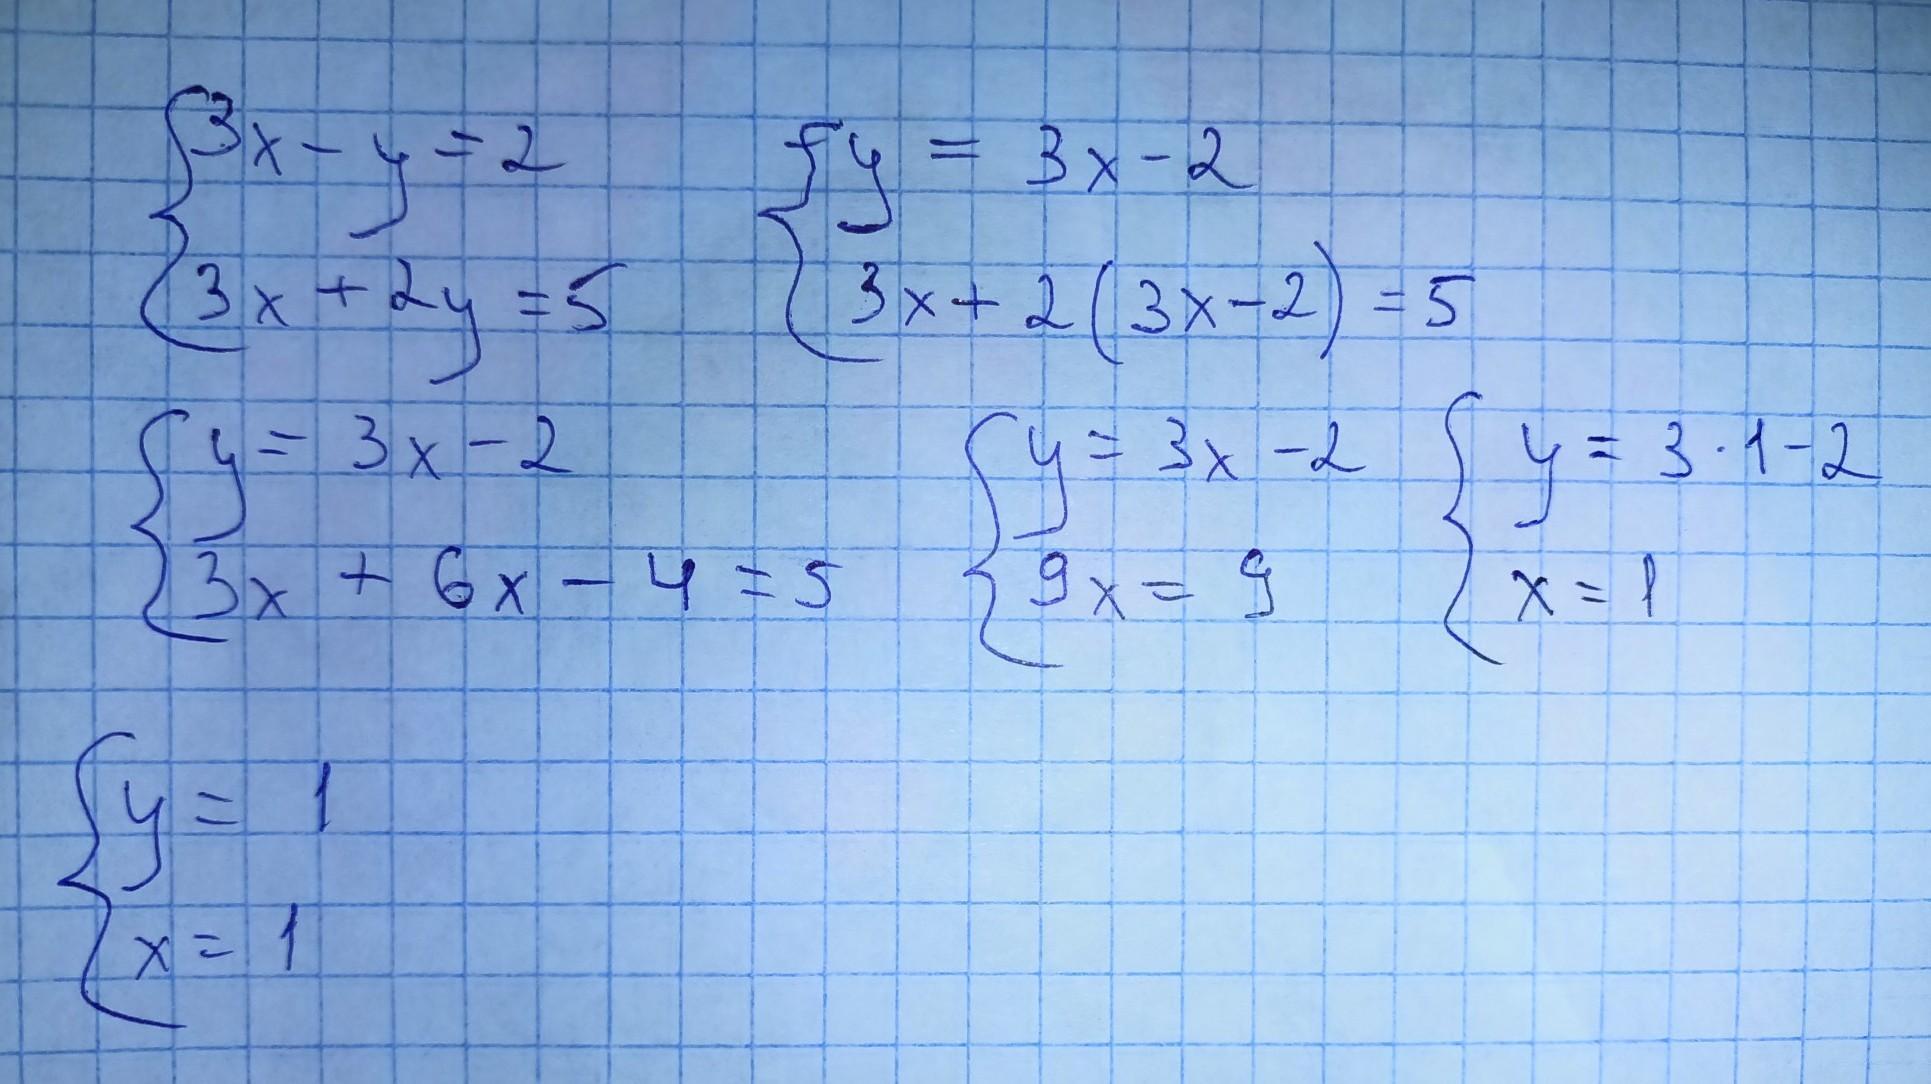 {3x - y = 2
{3x + 2y = 5
{y = 3x - 2
{3x + 2(3x - 2) = 5
{y = 3x - 2
{3x + 6x - 4 = 5
{y = 3x - 2
{9x = 9
{y = 3 · 1 - 2
{x = 1
{y = 1
{x = 1